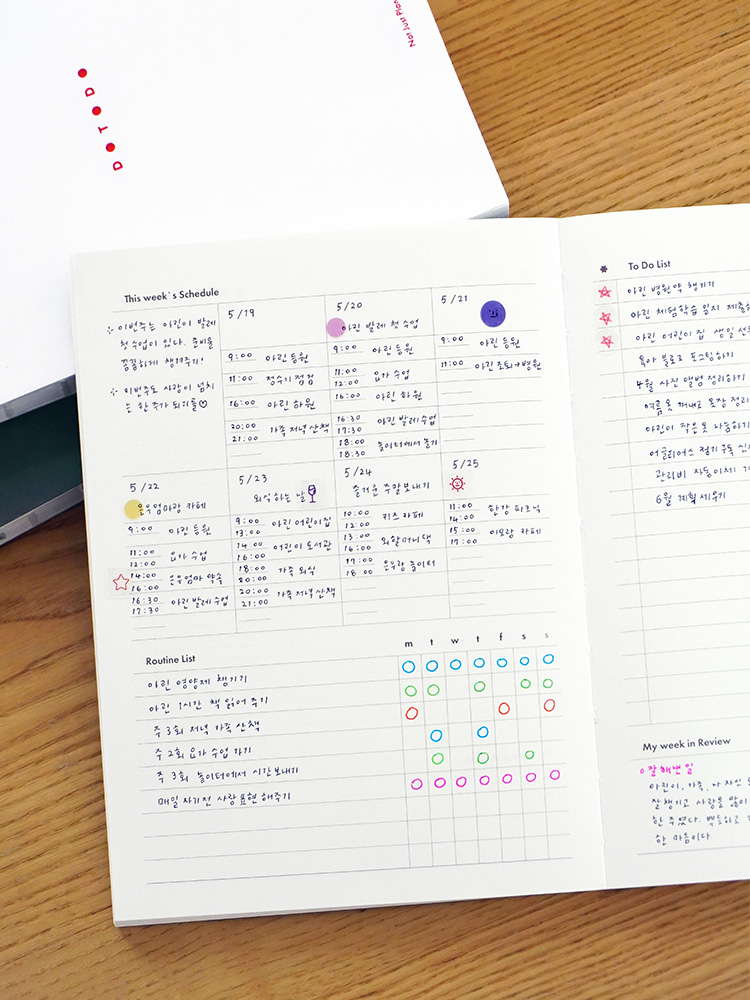 DOTODO
Not Just Plan
This week`s Schedule
이번주는 아린이 발레
첫 수업이 있다. 준비물
꼼꼼하게 챙겨주기!
이번주도 사랑이 넘치
는 한 주가 되기를♡
5/19
9:00 아린 등원
11:00 정수기 점검
16:00 아린 하원
20:00
21:00 가족 저녁 산책
5/20
아린 발레 첫 수업
9:00 아린 등원
11:00
12:00 요가 수업
16:00 아린 하원
16:30
17:30 아린 발레 수업
18:00
18:30 놀이터에서 놀기
5/21
9:00 아린 등원
아린 조퇴→병원
5/22
은우엄마랑 카페
9:00 아린 등원
11:00
12:00 요가 수업
14:00
16:00 은우엄마 약속
16:30
17:30 아린 발레 수업
5/23
외식하는 날
9:00
13:00 아린 어린이집
14:00
16:00 어린이 도서관
18:00
20:00 가족 외식
20:00
21:00 가족 저녁 산책
5/24
즐거운 주말보내기
10:00
12:00 키즈 카페
13:00
16:00 외할머니댁
17:00
18:00 은우랑 놀이터
5/25
11:00
14:00 한강 피크닉
15:00
17:00 이모랑 카페
Routine List
m t w t f s s
아린 영양제 챙기기
아린 1시간 책 읽어 주기
주 3회 저녁 가족 산책
주 2회 요가 수업 가기
주 3회 놀이터에서 시간 보내기
매일 자기전 사랑 표현 해주기
To Do List
아린 병원 약 챙기기
아린 체험학습 일지 제출하
아린 어린이집 생일 선
육아 블로그 포스팅하기
4월 사진 앨범 정리하기
여름 옷 꺼내고 옷장 정리
아린이 작은 옷 나눔하기
어글리어스 정기구독 신
관리비 자동이체
6월 계획 세우기
My week in Review
잘 해낸 일
아린이, 가족, 나 자신
잘 챙기고 사랑을 많이
한 주였다. 뿌듯하고
한 마음이다.